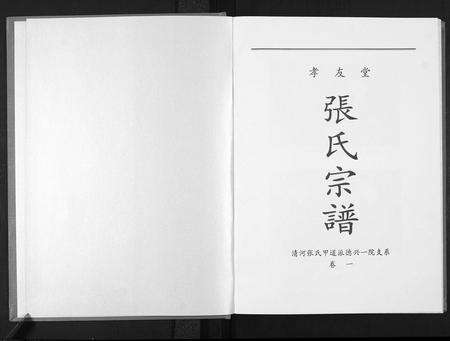 孝友堂
張氏宗譜
清河张氏甲道派德兴一院支系
卷一